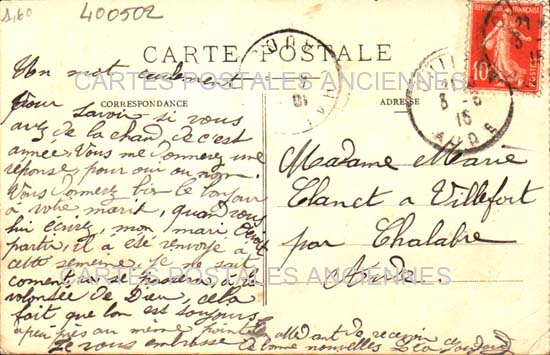 1,60
400502
CARTE POSTALE
CARTES POSTALES ANCIENNES
CORRESPONDANCE
ADRESSE
REPUBLIQUE FRANÇAISE
10
POSTES
AUDE
Un mot seulement
pour savoir si vous
avez de la chande c'est
année, Vous me donnerez une
réponse, pour oui ou non.
Vous donnerez bien le bonjour
à votre marit, quand vous
lui écrirez, mon mari devait
partir, il a été renvoyé à
cette semaine. Je ne sait
coment sa se passera, à la
volontée de Dieu, cela
fait que l'on est toujours
a peu près au meme point
Je vous embrasse
en attendant de recevoir de
bonne nouvelles
Madame Marie
Clanet à Villefort
par Chalabre
Aude
CARTES POSTALES ANCIENNES